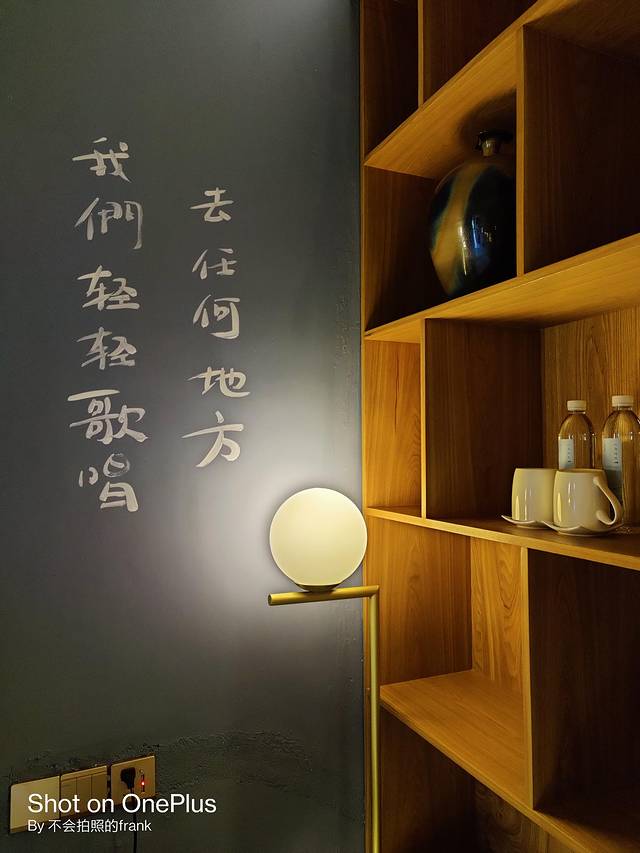 我們轻轻歌唱
去任何地方
Shot on OnePlus
By 不会拍照的frank